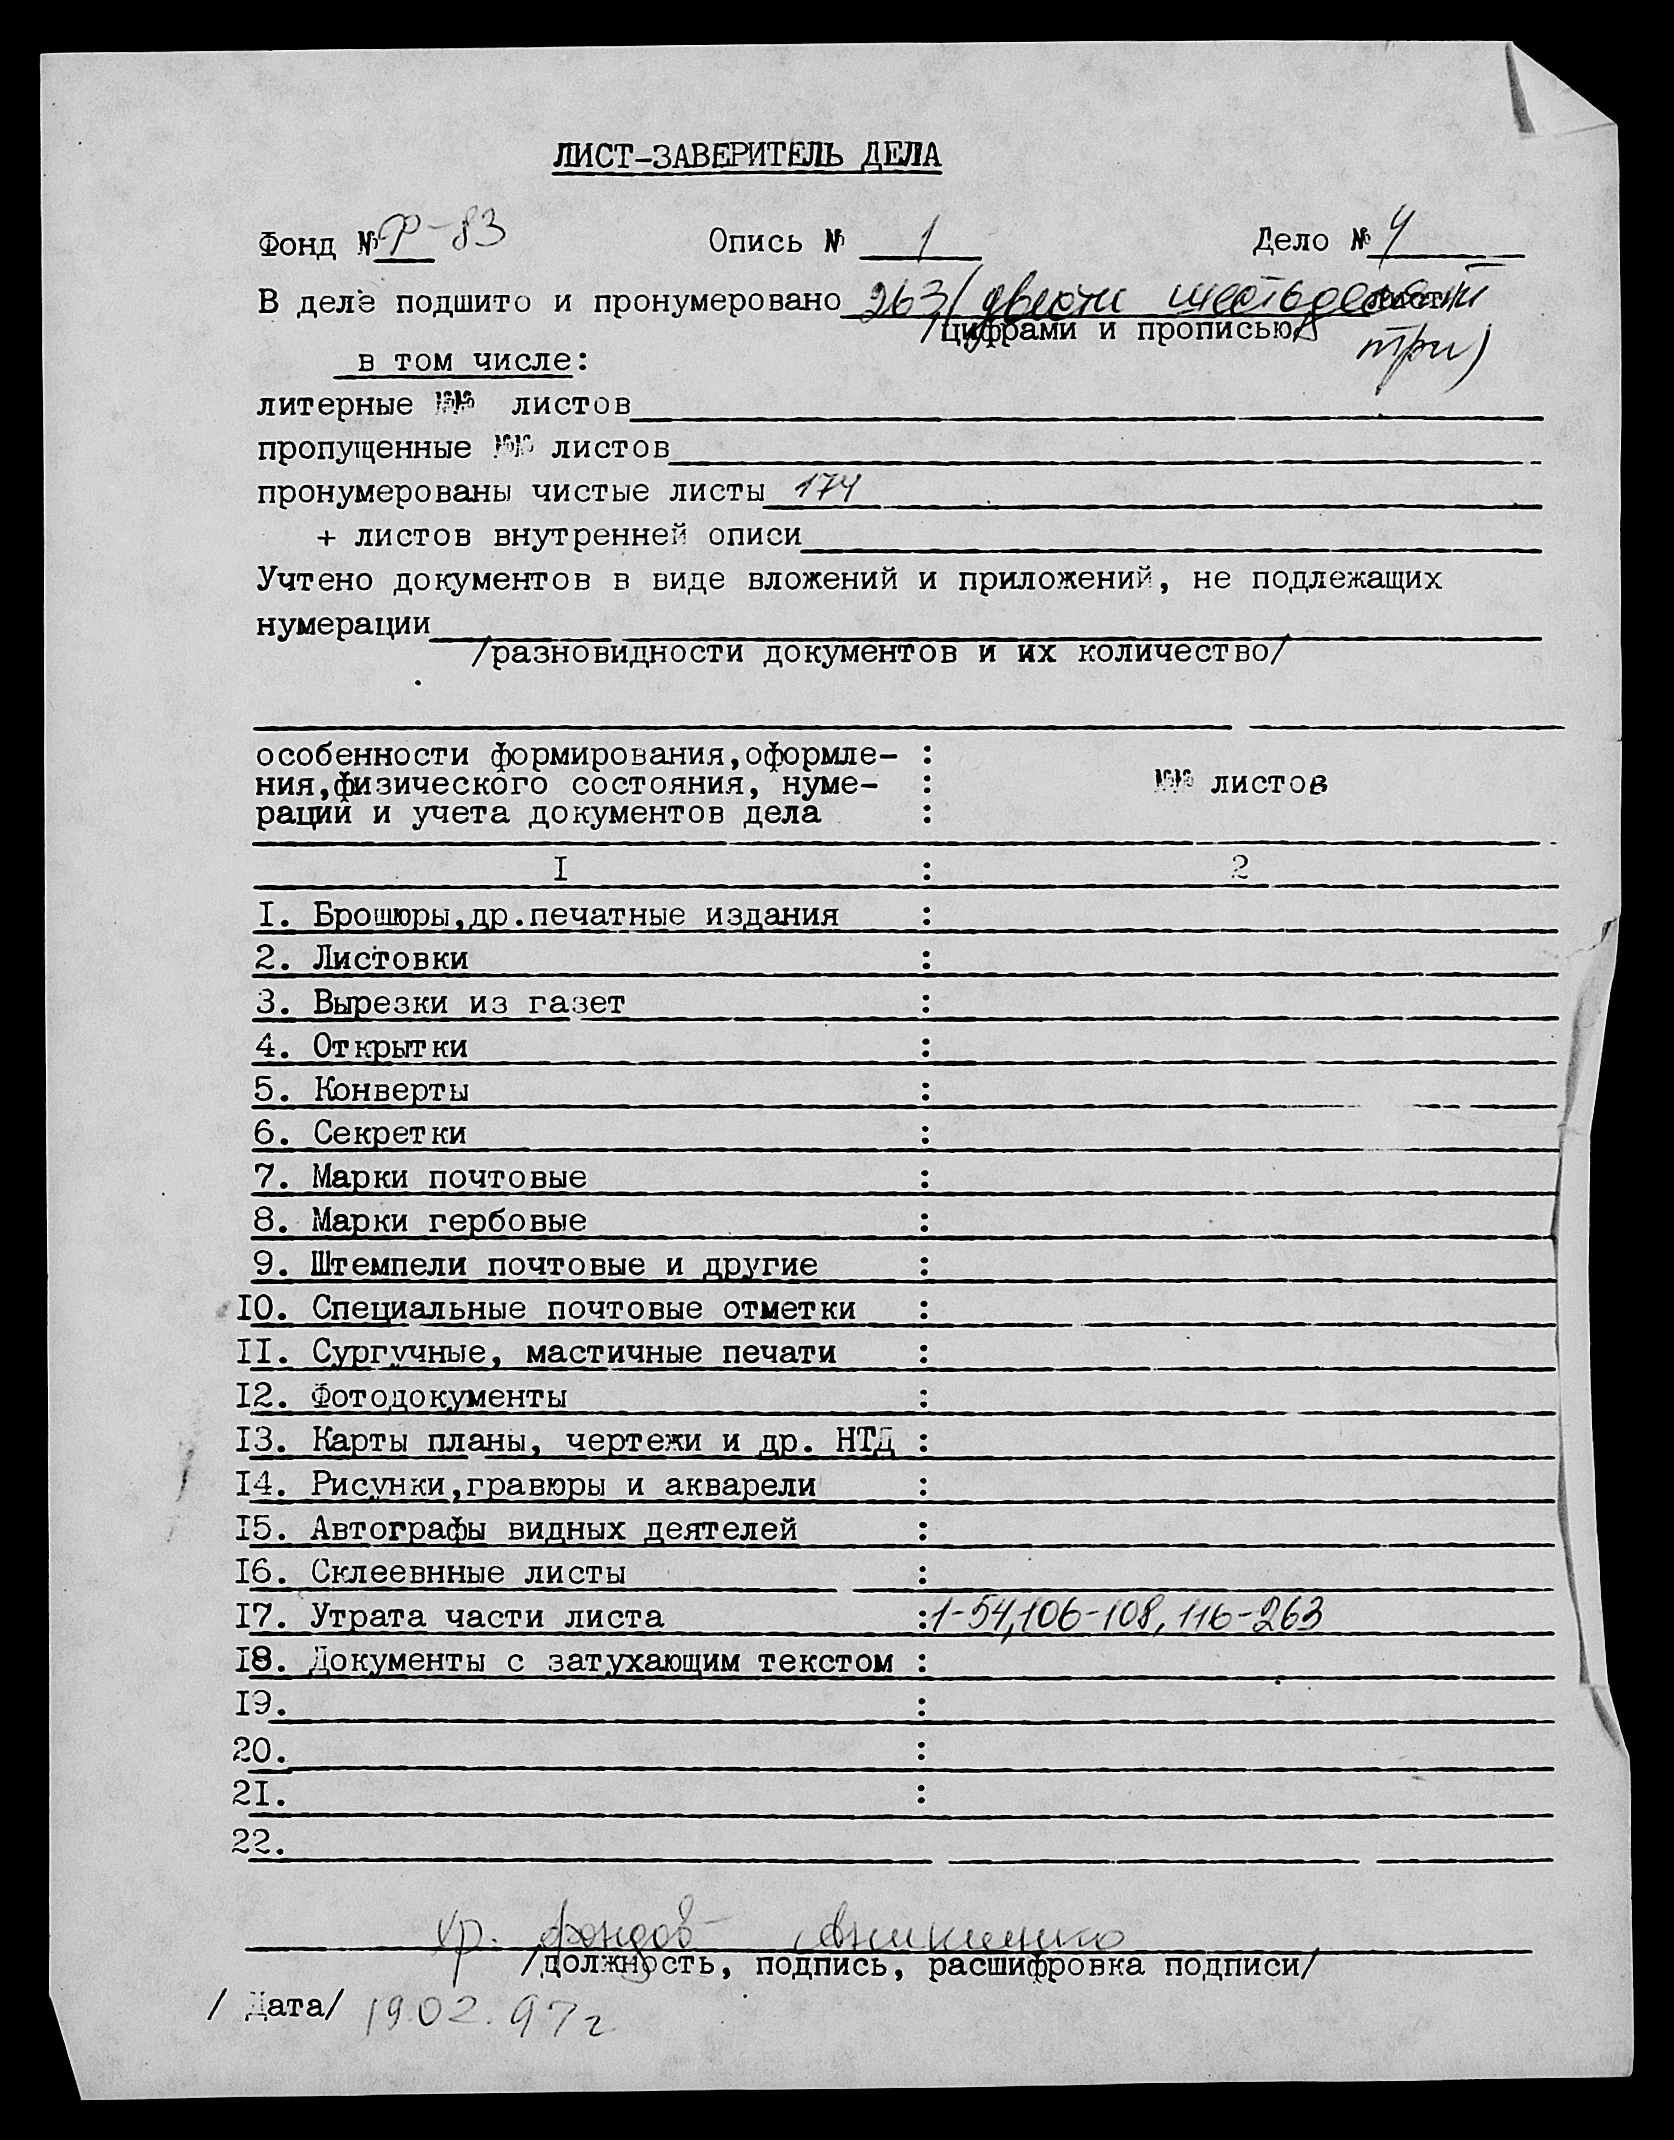 ЛИСТ-ЗАВЕРИТЕЛЬ ДЕЛА
Фонд № Р-83 Опись № 1 Дело № 4
В деле подшито и пронумеровано 263 (двести шестьдесят
/цифрами и прописью/ три)
в том числе:
литерные №№ листов
пропущенные №№ листов
пронумерованы чистые листы 174
+ листов внутренней описи
Учтено документов в виде вложений и приложений, не подлежащих
нумерации
/разновидности документов и их количество/
особенности формирования,оформле- :
ния,физического состояния, нуме- : №№ листов
рации и учета документов дела :
I : 2
I. Брошюры,др.печатные издания :
2. Листовки :
3. Вырезки из газет :
4. Открытки :
5. Конверты :
6. Секретки :
7. Марки почтовые :
8. Марки гербовые :
9. Штемпели почтовые и другие :
I0. Специальные почтовые отметки :
II. Сургучные, мастичные печати :
I2. Фотодокументы :
I3. Карты планы, чертежи и др. НТД :
I4. Рисунки,гравюры и акварели :
I5. Автографы видных деятелей :
I6. Склеевнные листы :
I7. Утрата части листа : 1-54, 106-108, 116-263
I8. Документы с затухающим текстом :
I9. :
20. :
2I. :
22.
хр. фондов
/должность, подпись, расшифровка подписи/
/ Дата/ 19.02.97 г